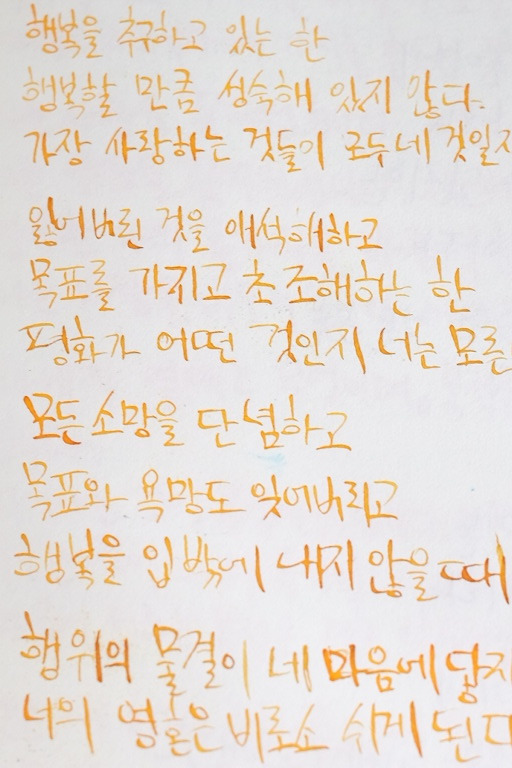 행복을 추구하고 있는 한
행복할 만큼 성숙해 있지 않다.
가장 사랑하는 것들이 모두 네 것일지
잃어버린 것을 애석해하고
목표를 가지고 초조해하는 한
평화가 어떤 것인지 너는 모른
모든 소망을 단념하고
목표와 욕망도 잊어버리고
행복을 입 밖에 내지 않을 때
행위의 물결이 네 마음에 닿지
너의 영혼은 비로소 쉬게 된다